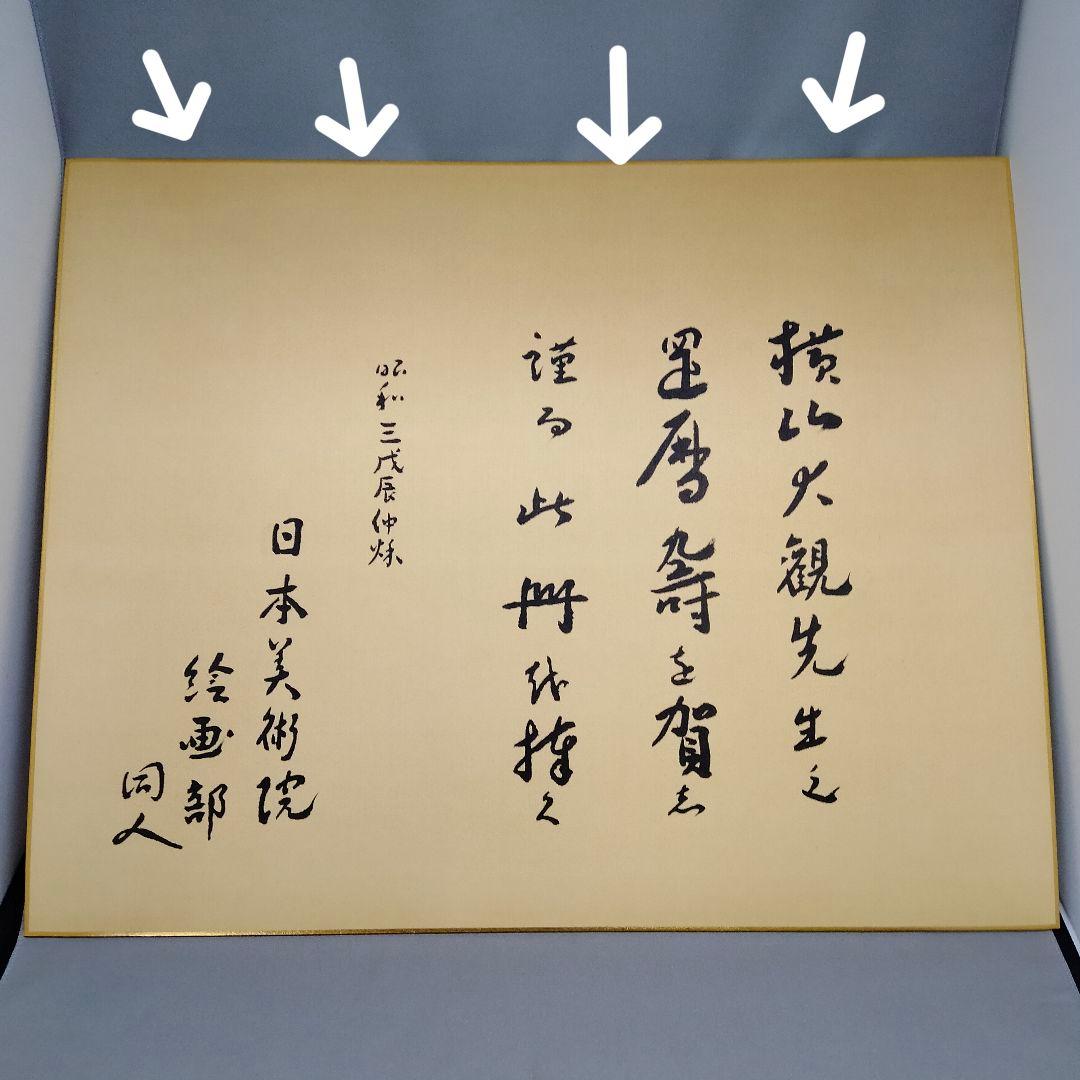 横山大観先生之
還暦寿を賀志
謹而此冊を捧久
昭和三戊辰仲秋
日本美術院
絵画部
同人